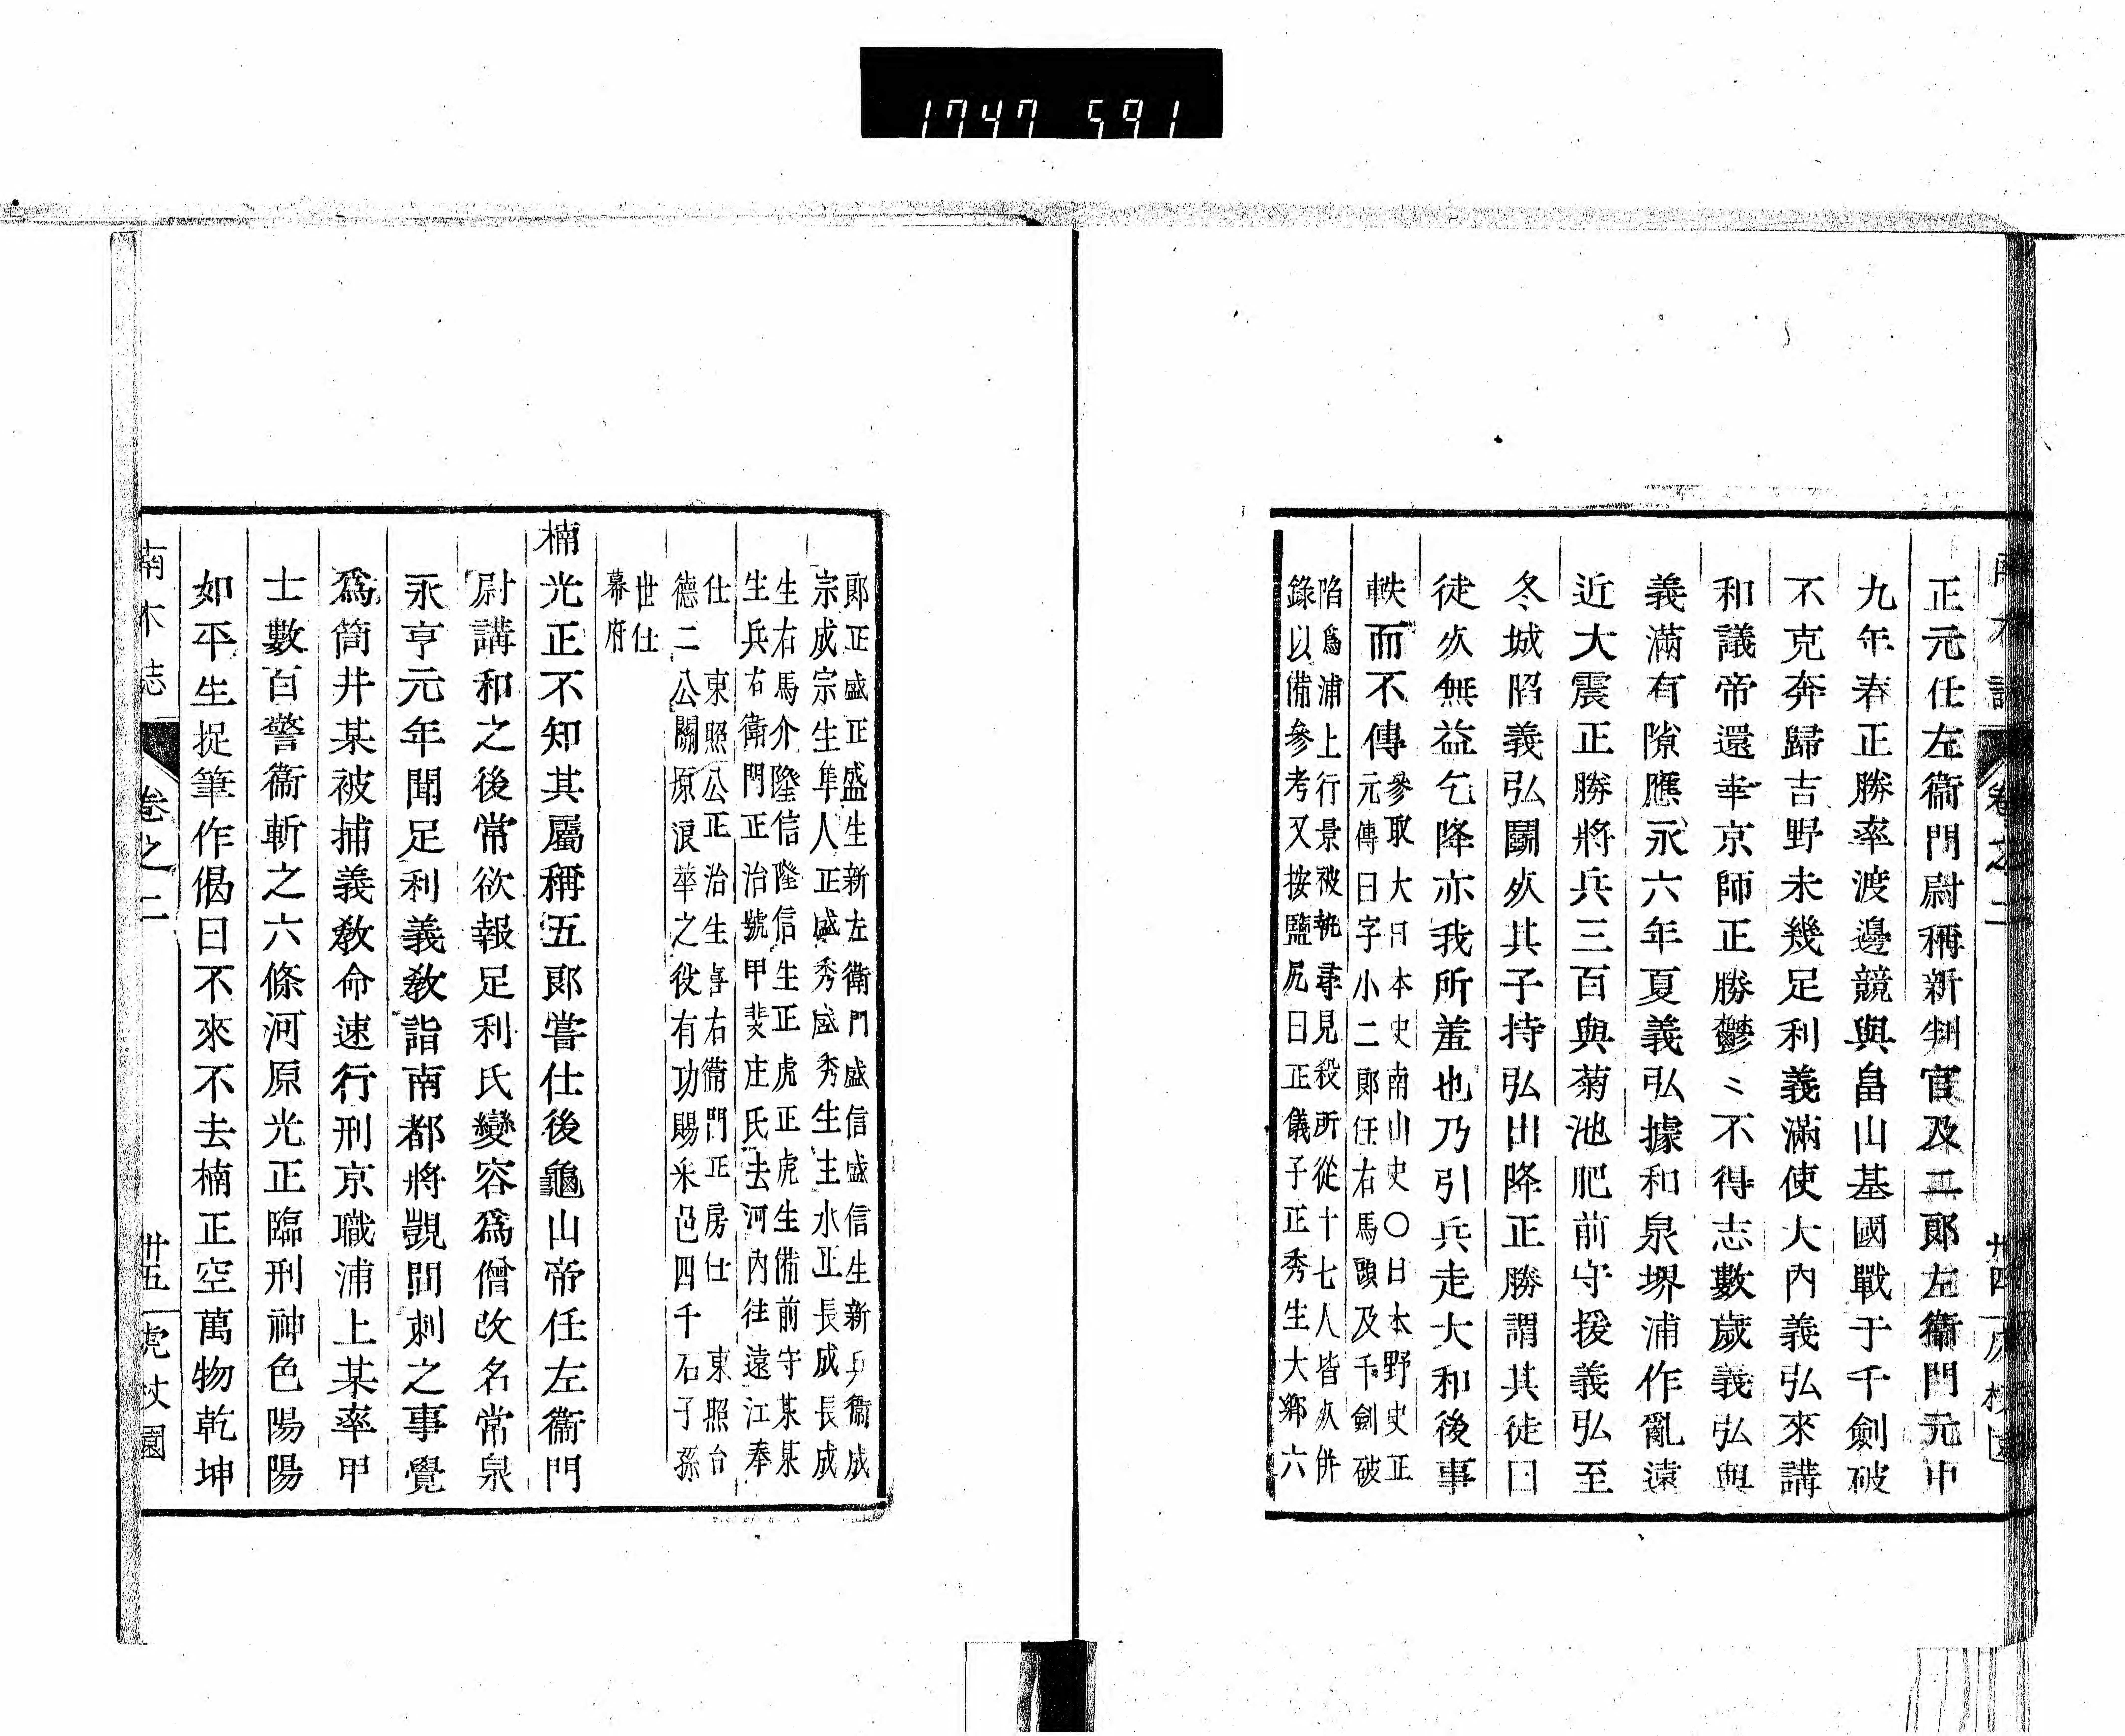 1747 591
南木誌 卷之二 卅四 虎杖園
正元任左衞門尉稱新判官及二郞左衞門元中
九年春正勝率渡邊競與畠山基國戰于千劍破
不克奔歸吉野未幾足利義滿使大內義弘來講
和議帝還幸京師正勝鬱〻不得志數歲義弘與
義滿有隙應永六年夏義弘據和泉堺浦作亂遠
近大震正勝將兵三百與菊池肥前守援義弘至
冬城陷義弘鬭死其子持弘出降正勝謂其徒曰
徒死無益乞降亦我所羞也乃引兵走大和後事
軼而不傳參取大日本史南山史〇日本野史正
元傳曰字小二郞任右馬頭及千劍破
陷爲浦上行景被執尋見殺所從十七人皆死併
錄以備參考又按鹽尻曰正儀子正秀生大鄕六
郞正盛正盛生新左衞門盛信盛信生新兵衞成
宗成宗生隼人正盛秀盛秀生主水正長成長成
生右馬介隆信隆信生正虎正虎生備前守某某
生兵右衞門正治號甲斐庄氏去河內往遠江奉
仕 東照公正治生喜右衞門正房仕 東照台
德二公關原浪華之役有功賜釆邑四千石子孫
世仕
幕府
楠光正不知其屬稱五郞嘗仕後龜山帝任左衞門
尉講和之後常欲報足利氏變容爲僧改名常泉
永亨元年聞足利義敎詣南都將覬間刺之事覺
爲筒井某被捕義敎命速行刑京職浦上某率甲
士數百警衞斬之六條河原光正臨刑神色陽陽
如平生捉筆作偈曰不來不去楠正空萬物乾坤
南木誌 卷之二 卅五 虎杖園